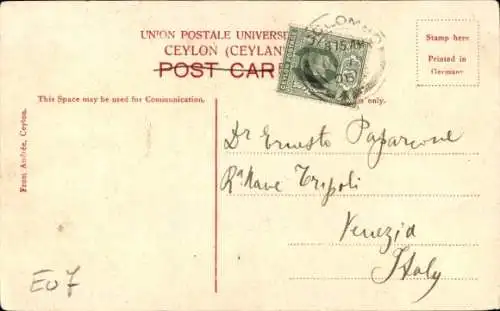 UNION POSTALE UNIVERSE
CEYLON (CEYLAN
POST CAR
COLOMBO
8 15 AM
Stamp here
Printed in
Germany
This Space may be used for Communication.
only.
From Andrée, Ceylon.
Dr Ernesto Paparcone
Ra Nave Tripoli
Venezia
Italy
Eu 7